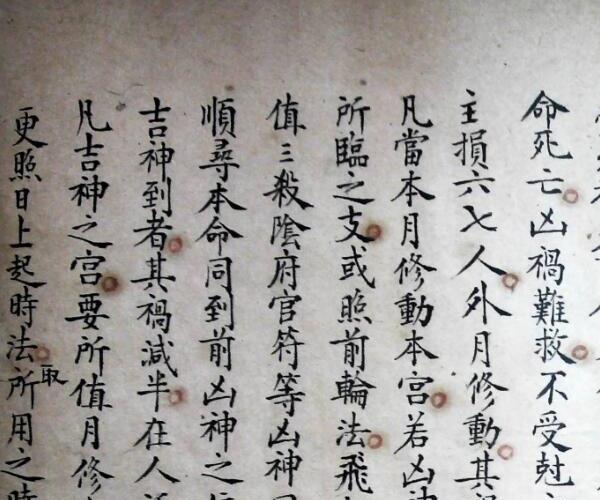 命死亡凶禍難救不受尅
主損六七人外月修動其
凡當本月修動本宮若凶神
所臨之支或照前輪法飛
值三殺陰府官符等凶神
順尋本命同到前凶神之
吉神到者其禍減半在人
凡吉神之宮要所值月修
更照日上起時法取所用之時